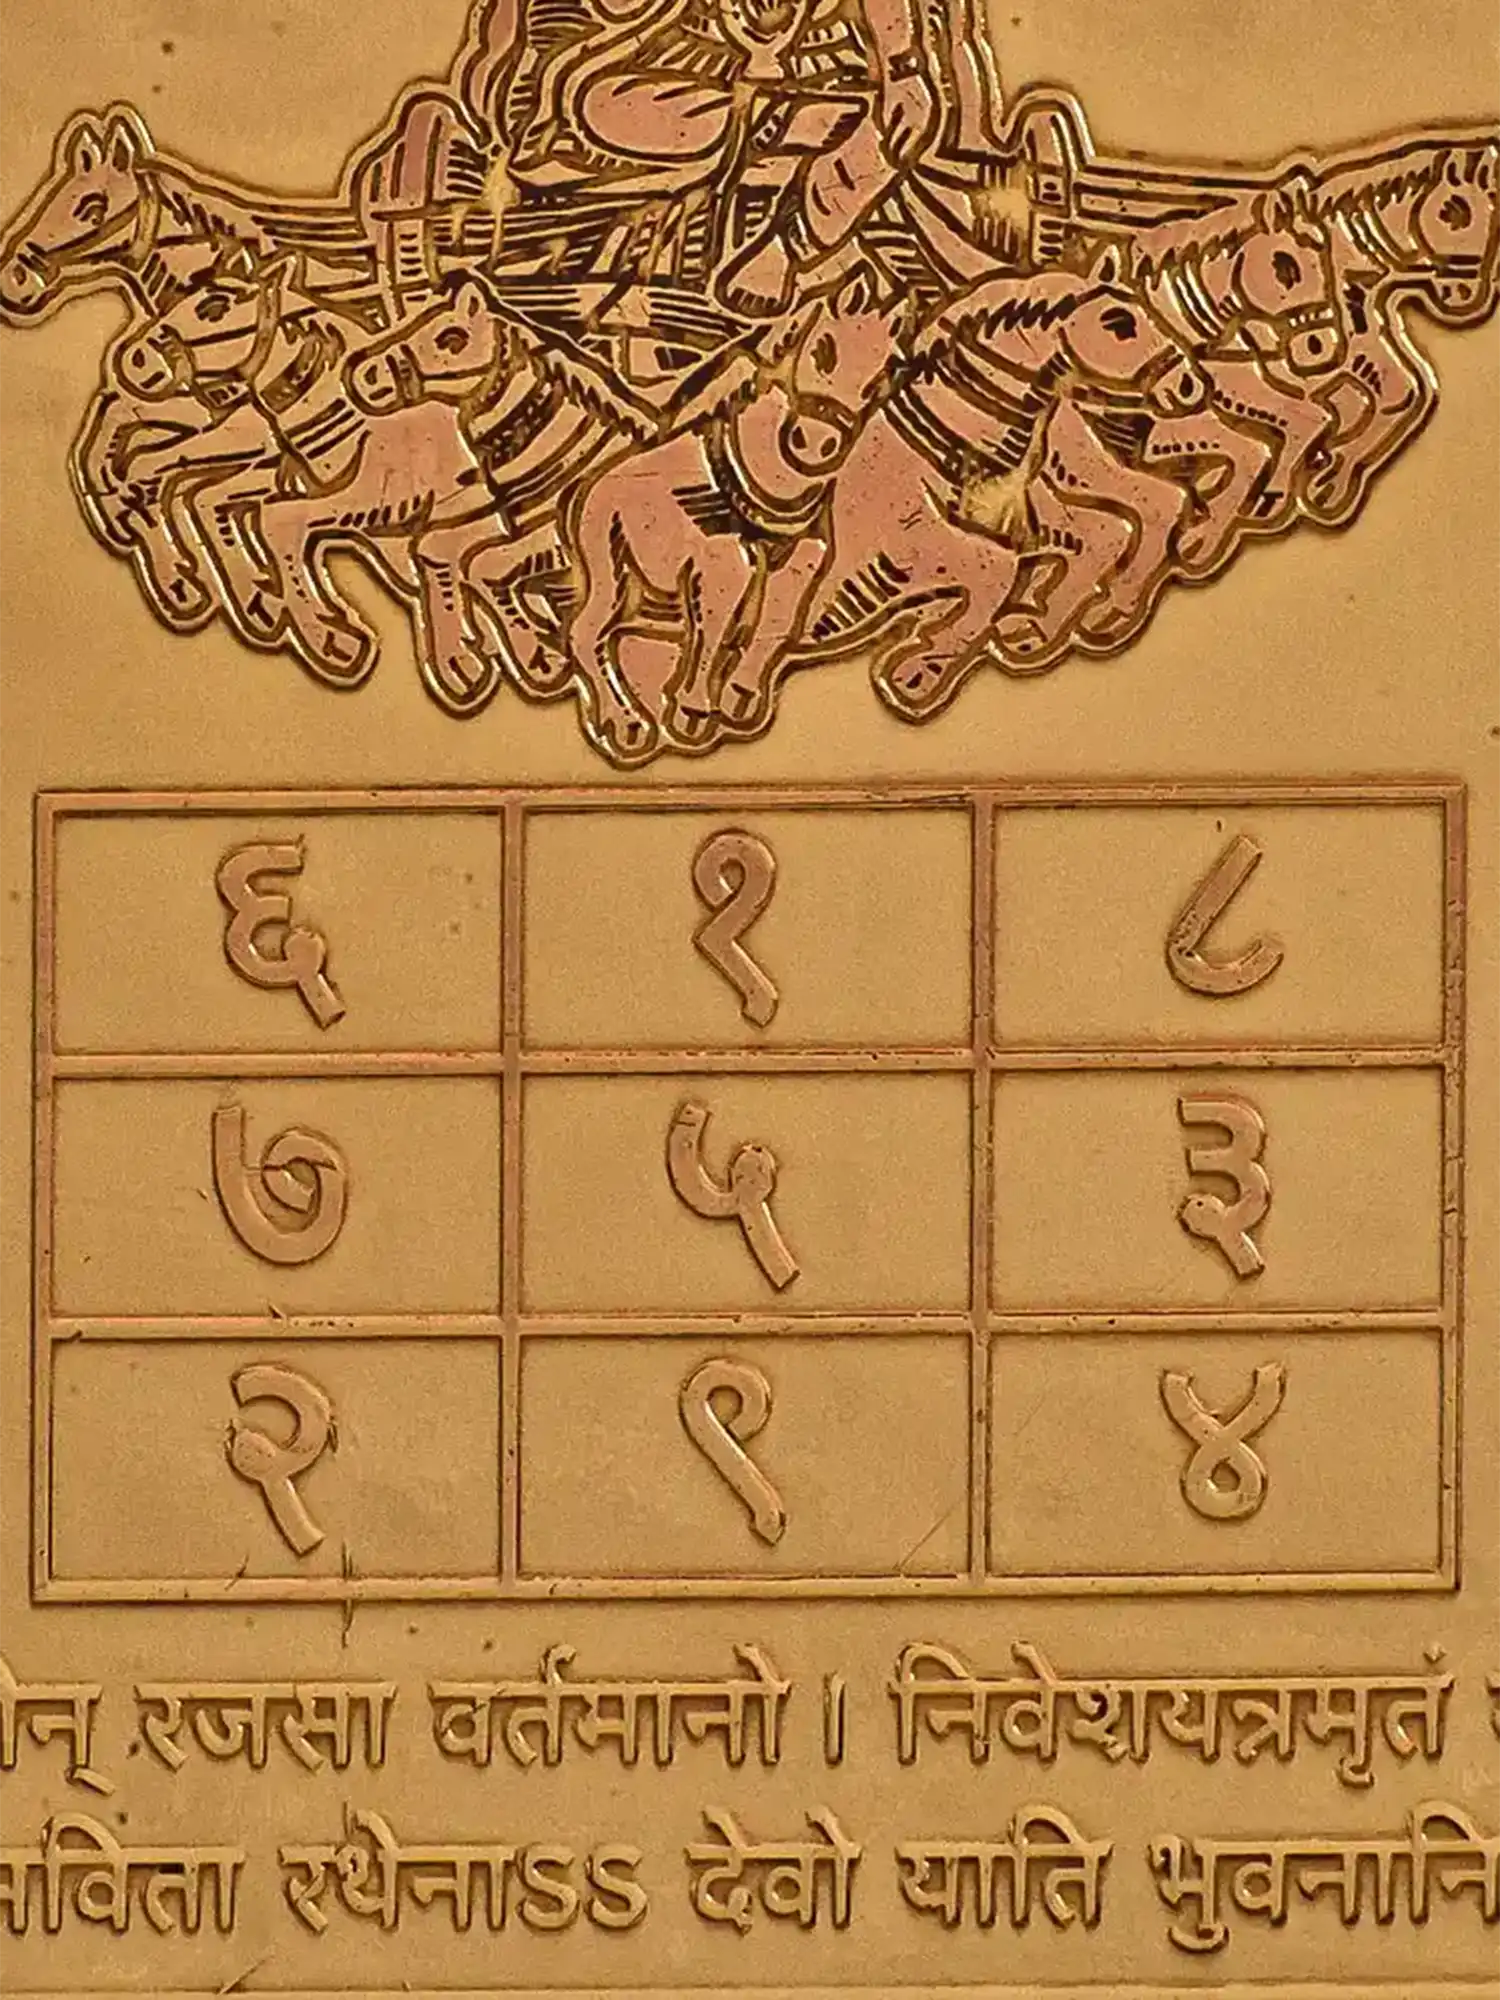 ६ १ ८
७ ५ ३
२ ९ ४
रजसा वर्तमानो । निवेशयन्नमृतं
सविता रथेनाऽऽ देवो याति भुवनानि